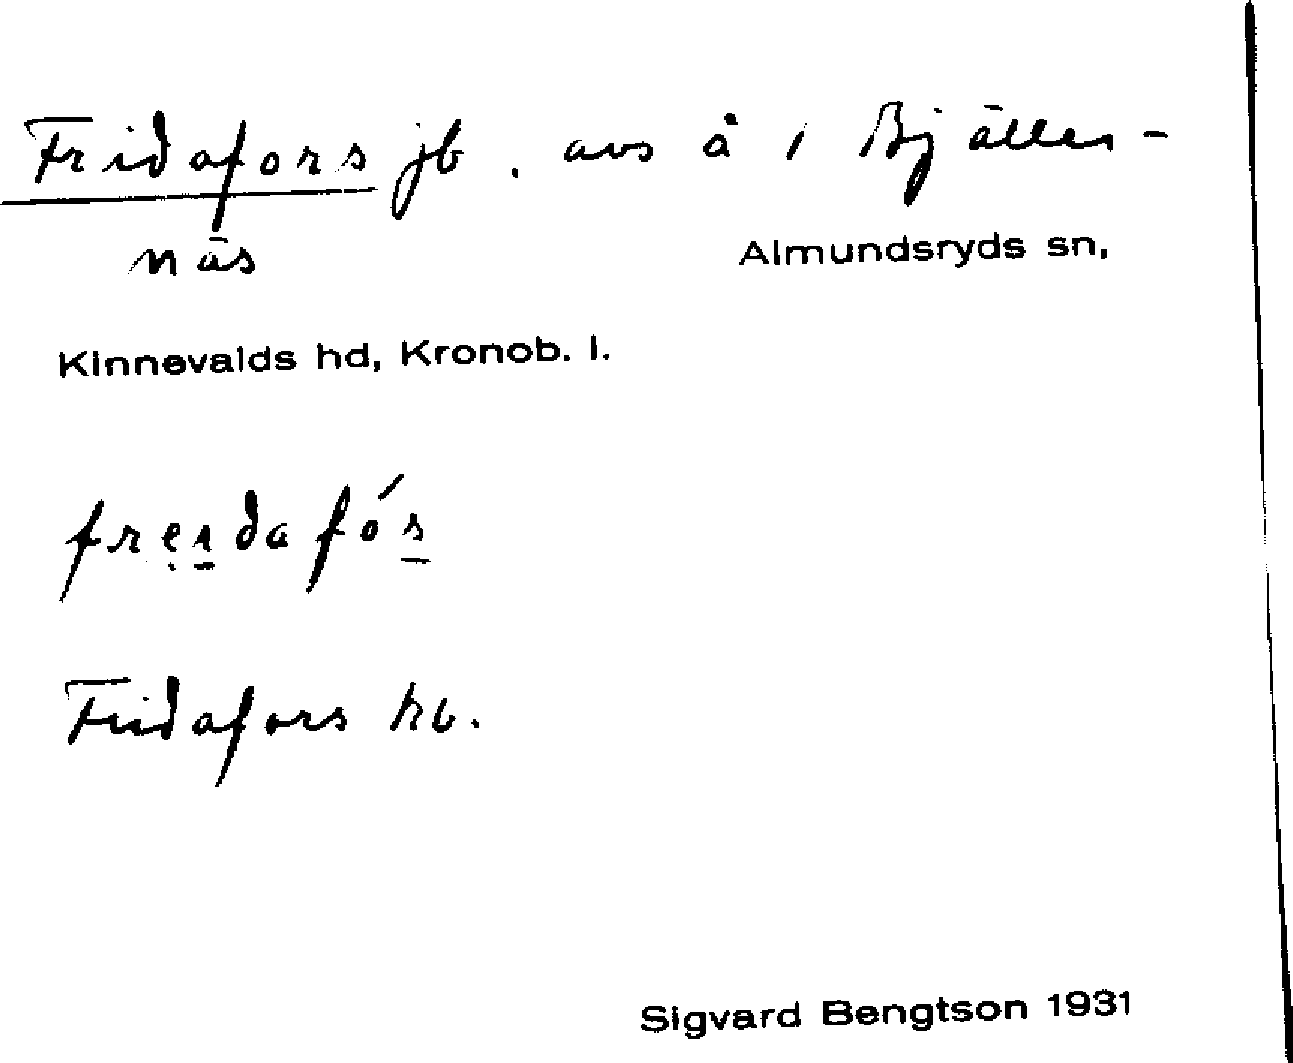 Fridafors jb. avs å i Bjäller-
näs
Almundsryds sn,
Kinnevalds hd, Kronob. l.
freịdafós
Fridafors hb.
Sigvard Bengtson 1931